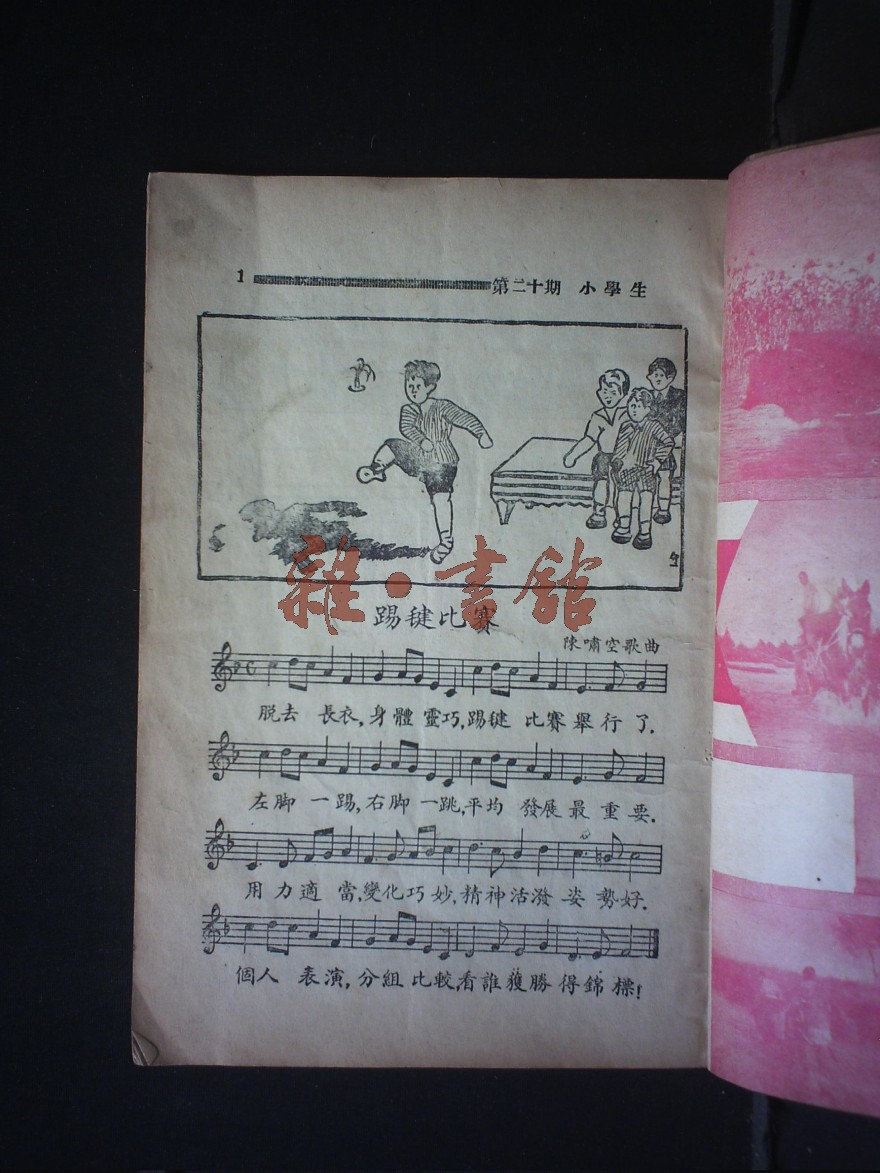 1 第二十期 小學生
雜·書館
踢毽比賽
陳嘯空歌曲
脫去 長衣,身體靈巧,踢毽 比賽舉行了.
左脚一踢,右脚一跳,平均 發展最重要.
用力適當,變化巧妙,精神活潑姿勢好.
個人 表演,分組比較,看誰獲勝得錦標!